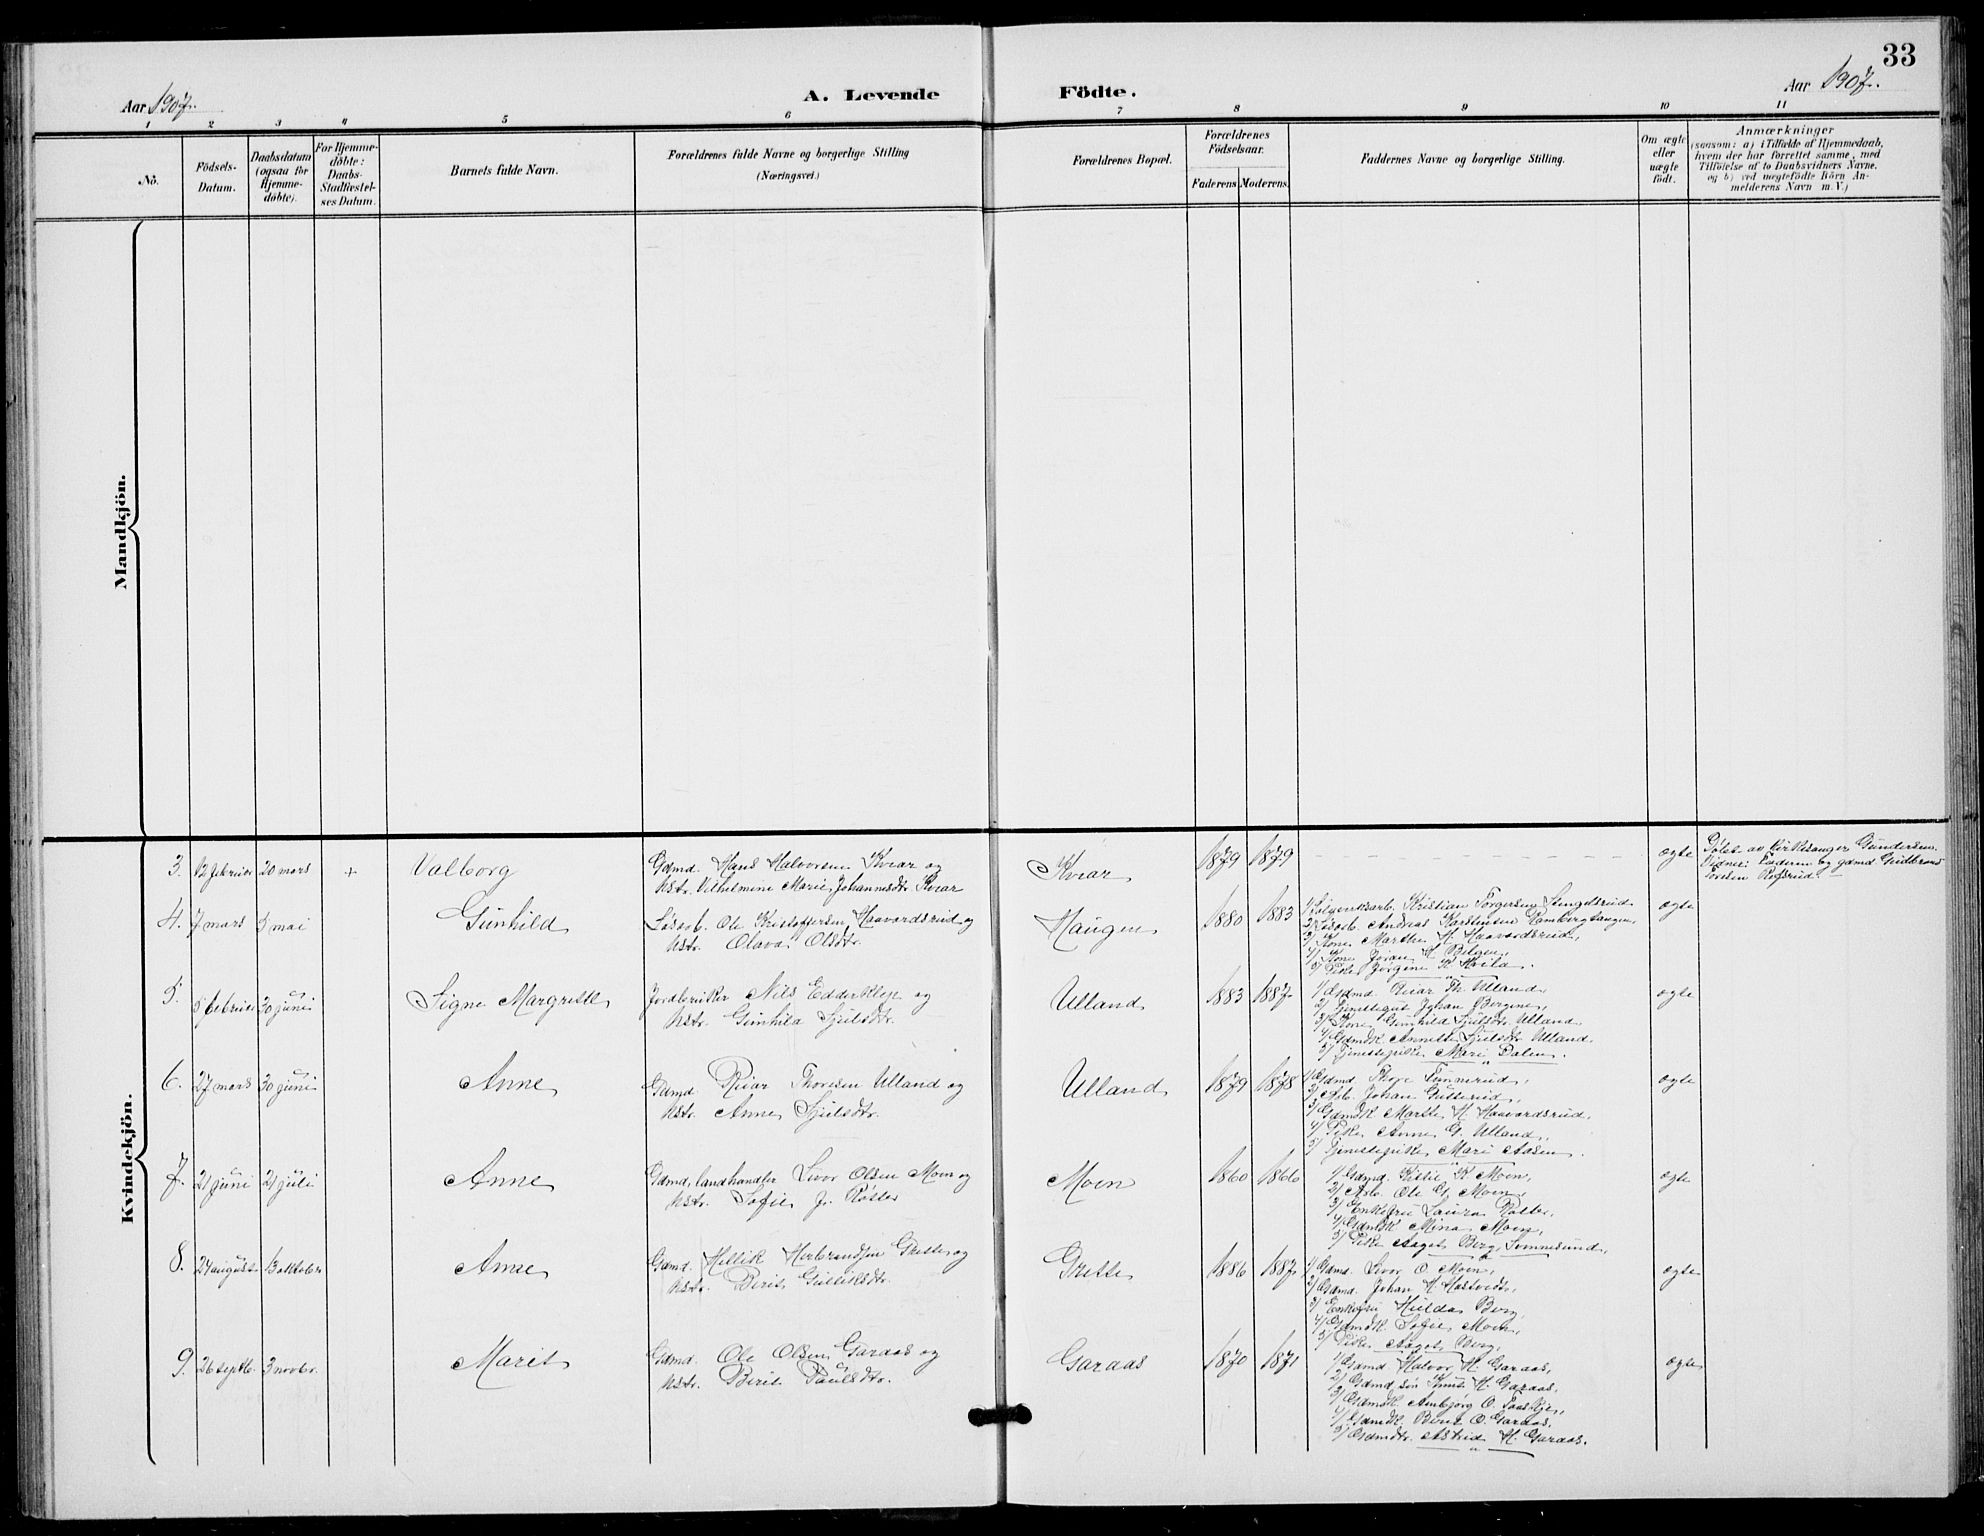 33
Aar 1907.
A. Levende Födte.
Aar 1907.
1 2 3 4 5 6 7 8 9 10 11
Nö.
Födsels-Datum.
Daabsdatum (ogsaa for Hjemme-døbte).
For Hjemme-døbte: Daabs-Stadfæstel-ses Datum.
Barnets fulde Navn.
Forældrenes fulde Navne og borgerlige Stilling (Næringsvei.)
Forældrenes Bopæl.
Forældrenes Födselsaar.
Faderens Moderens.
Faddernes Navne og borgerlige Stilling.
Om ægte eller uægte födt.
Anmærkninger
(saasom: a) i Tilfælde af Hjemmedaab,
hvem der har forrettet samme, med
Tilföielse af to Daabsvidners Navne.
og b) ved uægtefødte Börn An-
melderens Navn m. V.)
Mandkjön.
Kvindekjön.
3. 12 februar 20 mars + Valborg
Gdmd. Hans Halvorsen Kviar og
Hstr. Vilhelmine Marie Johannesdtr. Kviar
Kviar 1879 1879 ægte
Døbt av kirkesanger Gundersen.
Vidner: Faderen og gdmd Gulbrand
4. 7 mars 5 mai Gunhild
Løsarb. Ole Kristoffersen Haavardsrud og
Hstr. Olava Olsdtr.
Haugen 1880 1883 ægte
1/ Kristian Torgersen Stengelsrud
2/ Løsarb. Andreas Karstensen
3/ Kone Marthe H. Haavardsrud,
4/ Kone Joran H.
5/ Pike Jørgine K. Hvila.
5. 5 februar 30 juni Signe Margrethe
Jordbruker Nils Edderklep og
Hstr. Gunhild Sjulsdtr.
Ulland 1883 1887 ægte
1/ Gdmd. Reiar Th. Ulland,
2/ Tjenestegut Johan
3/ Kone Gunhild Sjulsdtr. Ulland
4/ Gdmdk. Annette Sjulsdtr. Ulland.
5/ Tjenestepike Mari Dalen.
6. 27 mars 30 juni Anne
Gdmd Reiar Thoresen Ulland og
Hstr. Anne Sjulsdtr.
Ulland 1879 1878 ægte
1/ Gdmd Thore
2/ Arb. Johan
3/ Gdmdk Marthe H. Haavardsrud.
4/ Pike Anne G. Ulland,
5/ Tjenestepike Mari Aasen.
7. 21 juni 21 juli Anne
Gdmd, landhandler Iver Olsen Moen og
Hstr. Sofie J.
Moen 1860 1866 ægte
1/ Gdmd. Kittil K. Moen,
2/ Arb. Ole G. Moen,
3/ Enkefru Laura
4/ Gdmdk Mina Moen,
5/ Pike Aagot Berg,
8. 24 august 13 oktober Anne
Gdmd. Hellik Herbrandsen Grette og
Hstr. Berit Gulliksdtr.
Grette 1886 1887 ægte
1/ Gdmd. Iver O. Moen,
2/ Gdmd. Johan H.
3/ Enkefru Hulda Berg
4/ Gdmdk Sofie Moen,
5/ Pike Aagot Berg,
9. 26 septbr. 3 novbr. Marit
Gdmd. Ole Olsen Garaas og
Hstr. Berit Paulsdtr.
Garaas 1870 1871 ægte
1/ Gdmd Halvor H. Garaas,
2/ Gdmd søn Knut H. Garaas,
3/ Gdmdk Ambjørg O.
4/ Gdmdk. Berit O. Garaas,
5/ Gdmdtr. Astrid H. Garaas.